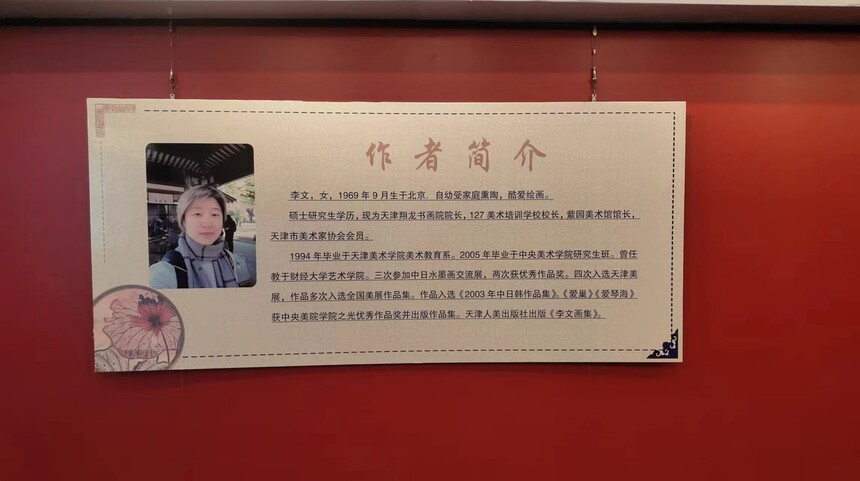 作者简介
李文，女，1969年9月生于北京．自幼受家庭熏陶，酷爱绘画。
硕士研究生学历，现为天津翔龙书画院院长，127美术培训学校校长，紫园美术馆馆长，
天津市美术家协会会员。
1994年毕业于天津美术学院美术教育系。2005年毕业于中央美术学院研究生班。曾任
教于财经大学艺术学院。三次参加中日水墨画交流展，两次获优秀作品奖。四次入选天津美
展，作品多次入选全国美展作品集。作品入选《2003年中日韩作品集》。《爱巢》《爱琴海》
获中央美院学院之光优秀作品奖并出版作品集。天津人美出版社出版《李文画集》。